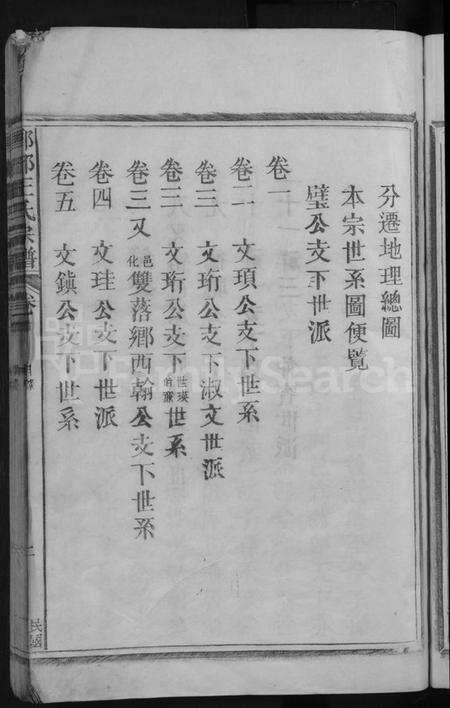 分遷地理總圖
本宗世系圖便覽
璧公支下世派
卷一
卷二 文頊公支下世系
卷三 文珩公支下淑文世派
卷三 文珩公支下世瑛伯齎世系
卷三又 邑化雙落鄉西翰公支下世系
卷四 文珪公支下世派
卷五 文鎮公支下世系
王氏宗譜
卷
民國
FamilySearch